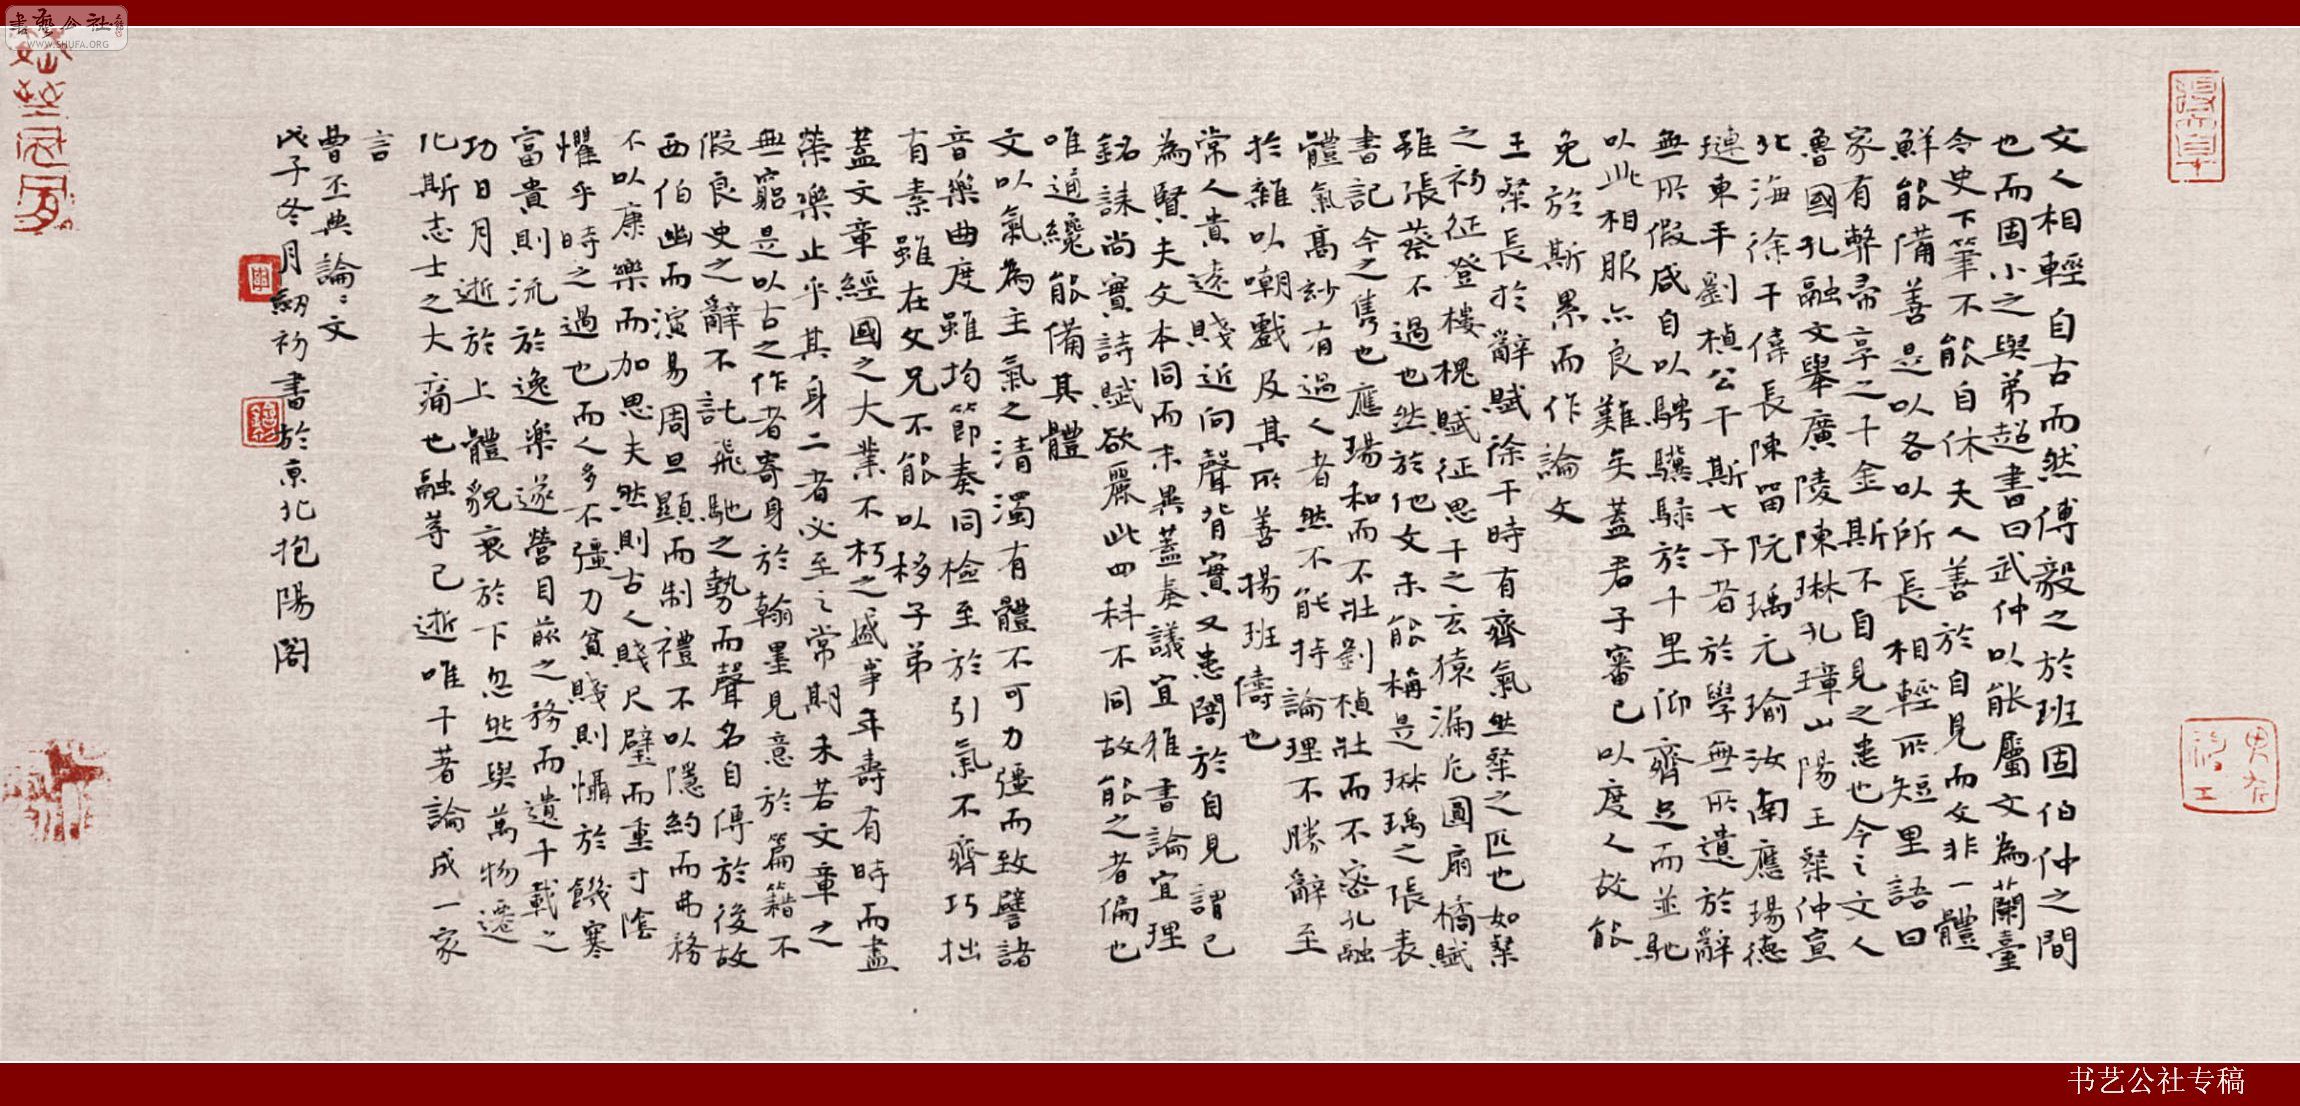 文人相輕自古而然傅毅之於班固伯仲之間
也而固小之與弟超書曰武仲以能屬文為蘭臺
令史下筆不能自休夫人善於自見而文非一體
鮮能備善是以各以所長相輕所短里語曰
家有弊帚享之千金斯不自見之患也今之文人
魯國孔融文舉廣陵陳琳孔璋山陽王粲仲宣
北海徐干偉長陳留阮瑀元瑜汝南應瑒德
璉東平劉楨公干斯七子者於學無所遺於辭
無所假咸自以騁驥騄於千里仰齊足而並馳
以此相服亦良難矣蓋君子審己以度人故能
免於斯累而作論文
王粲長於辭賦徐干時有齊氣然粲之匹也如粲
之初征登樓槐賦征思干之玄猿漏卮圓扇橘賦
雖張蔡不過也然於他文未能稱是琳瑀之張表
書記今之雋也應瑒和而不壯劉楨壯而不密孔融
體氣高妙有過人者然不能持論理不勝辭至
於雜以嘲戲及其所善揚班儔也
常人貴遠賤近向聲背實又患闇於自見謂己
為賢夫文本同而末異蓋奏議宜雅書論宜理
銘誄尚實詩賦欲麗此四科不同故能之者偏也
唯通纔能備其體
文以氣為主氣之清濁有體不可力彊而致譬諸
音樂曲度雖均節奏同檢至於引氣不齊巧拙
有素雖在父兄不能以移子弟
蓋文章經國之大業不朽之盛事年壽有時而盡
榮樂止乎其身二者必至之常期未若文章之
無窮是以古之作者寄身於翰墨見意於篇籍不
假良史之辭不託飛馳之勢而聲名自傳於後故
西伯幽而演易周旦顯而制禮不以隱約而弗務
不以康樂而加思夫然則古人賤尺璧而重寸陰
懼乎時之過也而人多不彊力貧賤則懾於饑寒
富貴則流於逸樂遂營目前之務而遺千載之
功日月逝於上體貌衰於下忽然與萬物遷
化斯志士之大痛也融等已逝唯干著論成一家
言
曹丕典論論文
戊子冬月劒初書於京北抱陽閣
WWW.SHUFA.ORG
书艺公社专稿